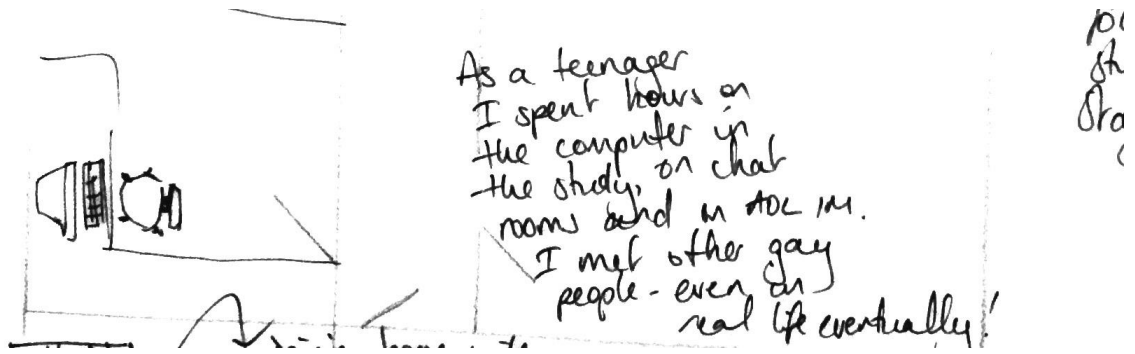 As a teenager
I spent hours on
the computer in
the study, on chat
rooms and on AOL IM.
I met other gay
people - even in
real life eventually!